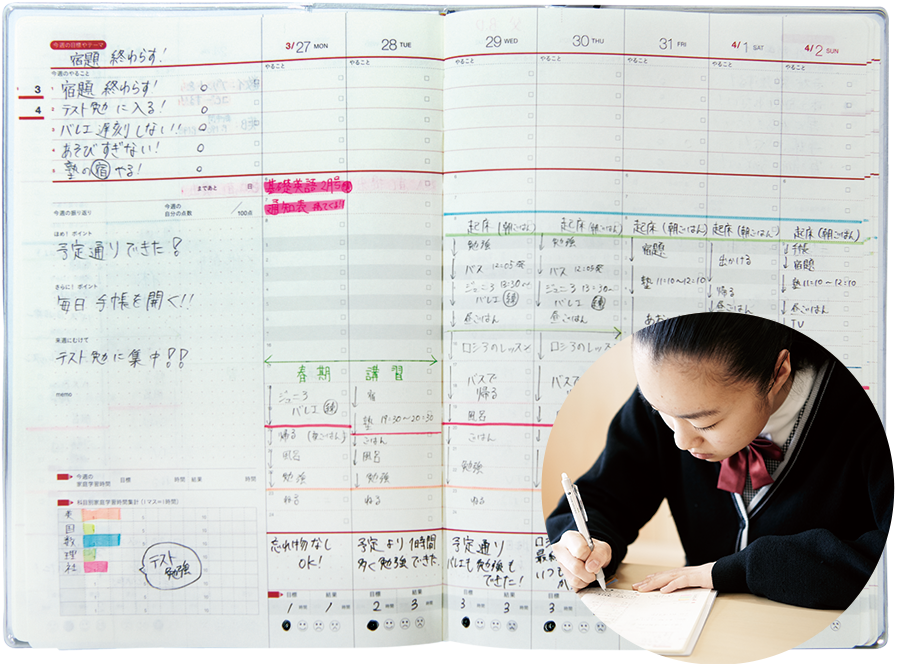 今週の目標やテーマ
宿題 終わらす!
今週のやること
3
4
1 宿題 終わらす! ○
テスト勉 に入る! ○
バレエ 遅刻しない!! ○
あそびすぎない! ○
塾の宿やる! ○
まであと 日
今週の振り返り
今週の
自分の点数
/100点
ほめ!ポイント
予定通りできた!
さらに!ポイント
毎日 手帳を開く!!
来週にむけて
テスト勉に集中!!
memo
今週の
家庭学習時間
目標 時間 結果 時間
科目別家庭学習時間集計(1マス=1時間)
英
国
数
理
社
テスト
勉強
3/27 MON
やること
基礎英語2月号
通知表
春期
ジュニア
バレエ
帰る (夜ごはん)
風呂
勉強
ねる
忘れ物なし
OK!
目標 結果
1 時間 1 時間
28 TUE
講習
塾 19:30〜20:30
ごはん
風呂
勉強
ねる
予定より1時間
多く勉強できた.
目標 結果
2 時間 3 時間
29 WED
やること
起床 (朝ごはん)
勉強
バス 12:05発
ジュニア 13:30〜
バレエ
昼ごはん
ロシアのレッスン
バスで
帰る
風呂
ごはん
勉強
ねる
予定通り
バレエも勉強も
できた!
目標 結果
3 時間 3 時間
30 THU
やること
起床 (朝ごはん)
勉強
バス 12:05発
ジュニア 13:30〜
バレエ
昼ごはん
ロシアのレッスン
バスで
帰る
目標
3
31 FRI
やること
起床 (朝ごはん)
宿題
塾 11:10〜12:10
4/1 SAT
やること
起床 (朝ごはん)
出かける
帰る
昼ごはん
4/2 SUN
やること
起床 (朝ごはん)
手帳
宿題
塾 11:10〜12:10
昼ごはん
TV